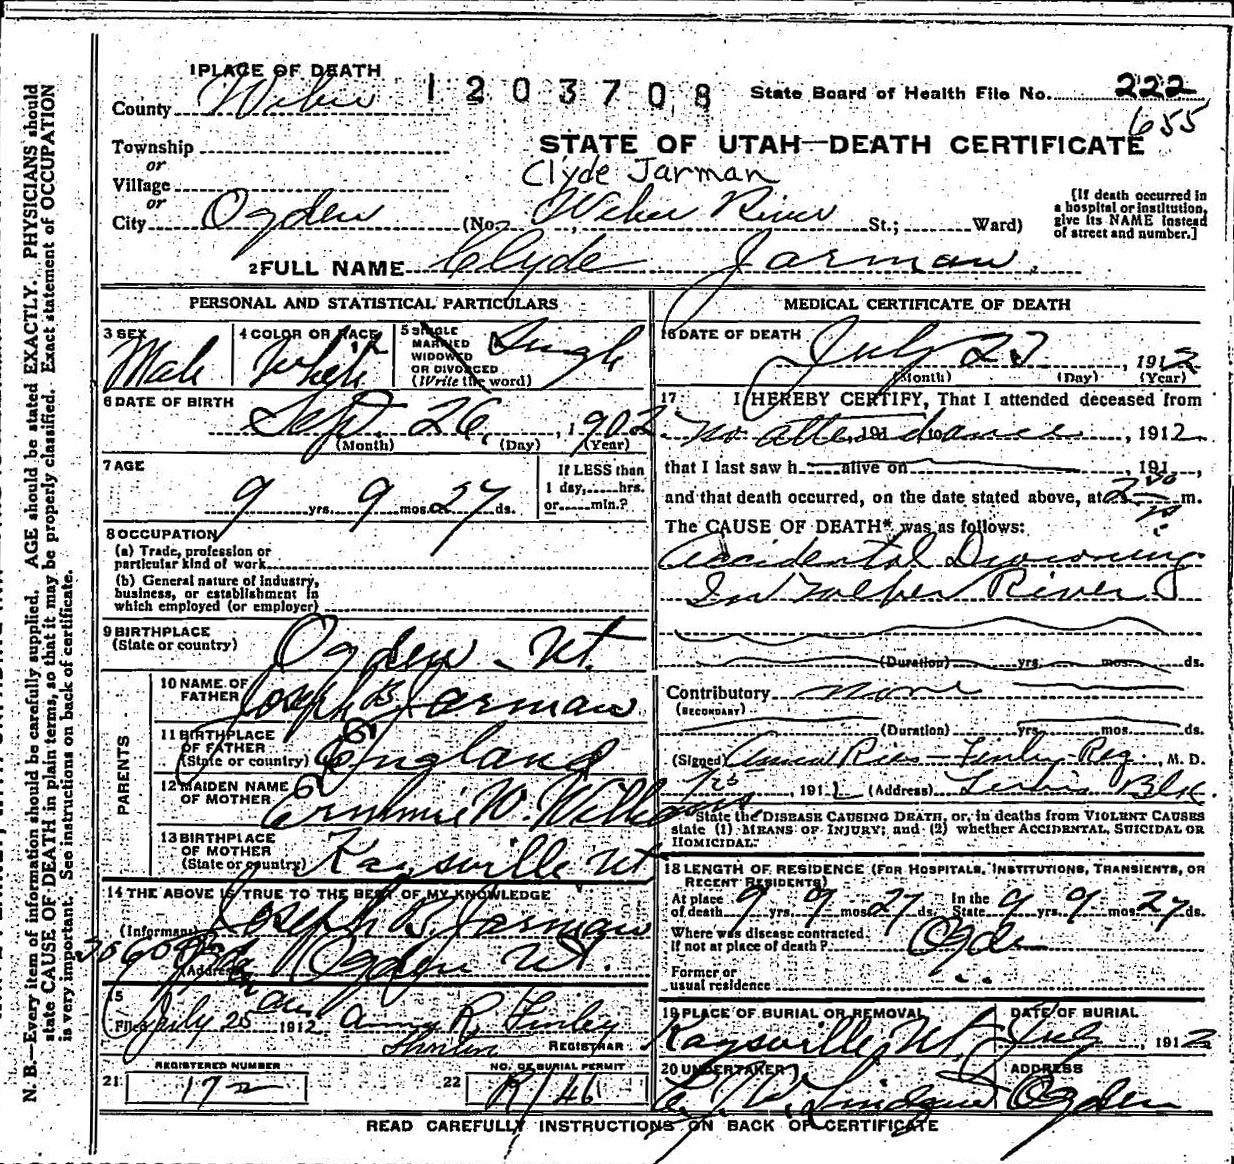 1 PLACE OF DEATH
1203708
State Board of Health File No. 222
655
County Weber
Township
or
Village
or
City Ogden
STATE OF UTAH—DEATH CERTIFICATE
Clyde Jarman
(No. Weber River St.; Ward)
[If death occurred in a hospital or institution, give its NAME instead of street and number.]
2 FULL NAME Clyde Jarman
PERSONAL AND STATISTICAL PARTICULARS
3 SEX Male
4 COLOR OR RACE White
5 SINGLE MARRIED WIDOWED OR DIVORCED (Write the word) Single
6 DATE OF BIRTH
Sept. 26, 1902
(Month) (Day) (Year)
7 AGE
9 yrs. 9 mos. 27 ds.
If LESS than 1 day, hrs. or min.?
8 OCCUPATION
(a) Trade, profession or particular kind of work
(b) General nature of industry, business, or establishment in which employed (or employer)
9 BIRTHPLACE (State or country) Ogden - Ut.
PARENTS
10 NAME OF FATHER Joseph B. Jarman
11 BIRTHPLACE OF FATHER (State or country) England
12 MAIDEN NAME OF MOTHER W. Williams
13 BIRTHPLACE OF MOTHER (State or country) Kaysville Ut
14 THE ABOVE IS TRUE TO THE BEST OF MY KNOWLEDGE
(Informant) Joseph B. Jarman
(Address) Ogden Ut.
15
Filed July 25 1912 R. Finley
REGISTRAR
REGISTERED NUMBER
21 172
NO. OF BURIAL PERMIT
22 R/46
MEDICAL CERTIFICATE OF DEATH
16 DATE OF DEATH
July 23, 1912
(Month) (Day) (Year)
17 I HEREBY CERTIFY, That I attended deceased from
no attendance, 191 to , 1912
that I last saw h alive on , 191 ,
and that death occurred, on the date stated above, at 2 m.
The CAUSE OF DEATH* was as follows:
Accidental Drowning
In Weber River
(Duration) yrs. mos. ds.
Contributory none
(SECONDARY)
(Duration) yrs. mos. ds.
(Signed) Finley Reg , M. D.
7/25 , 191 2 (Address) Blk.
State the DISEASE CAUSING DEATH, or, in deaths from VIOLENT CAUSES
state (1) MEANS OF INJURY; and (2) whether ACCIDENTAL, SUICIDAL OR
HOMICIDAL.
18 LENGTH OF RESIDENCE (FOR HOSPITALS, INSTITUTIONS, TRANSIENTS, OR
RECENT RESIDENTS)
At place of death 9 yrs. 9 mos. 27 ds. In the State 9 yrs. 9 mos. 27 ds.
Where was disease contracted, if not at place of death? Ogden
Former or usual residence
19 PLACE OF BURIAL OR REMOVAL
Kaysville Ut.
DATE OF BURIAL
July , 1912
20 UNDERTAKER
ADDRESS
Ogden
READ CAREFULLY INSTRUCTIONS ON BACK OF CERTIFICATE
N. B.—Every item of information should be carefully supplied. AGE should be stated EXACTLY. PHYSICIANS should
state CAUSE OF DEATH in plain terms, so that it may be properly classified. Exact statement of OCCUPATION
is very important. See instructions on back of certificate.